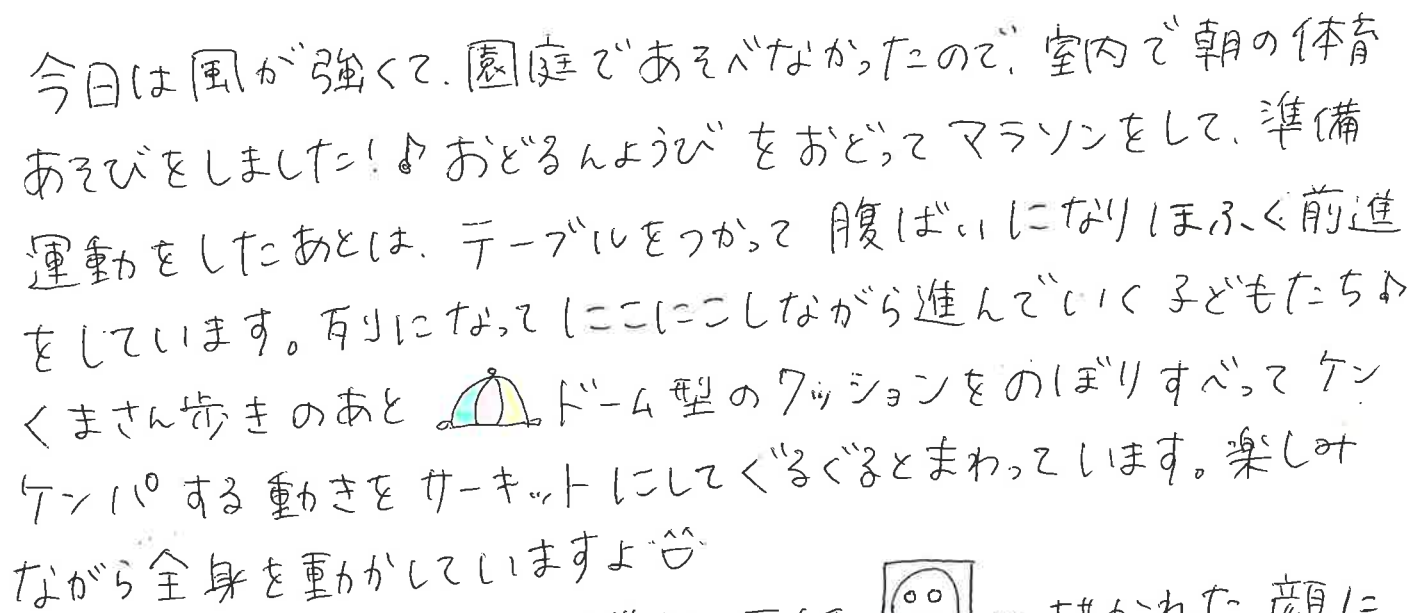 今日は風が強くて、園庭であそべなかったので、室内で朝の体育
あそびをしました!♪おどるんようびをおどってマラソンをして、準備
運動をしたあとは、テーブルをつかって腹ばいになりほふく前進
をしています。列になってにこにこしながら進んでいく子どもたち♪
くまさん歩きのあとドーム型のクッションをのぼりすべってケン
ケンパする動きをサーキットにしてぐるぐるとまわっています。楽しみ
ながら全身を動かしていますよ
描かれた顔に